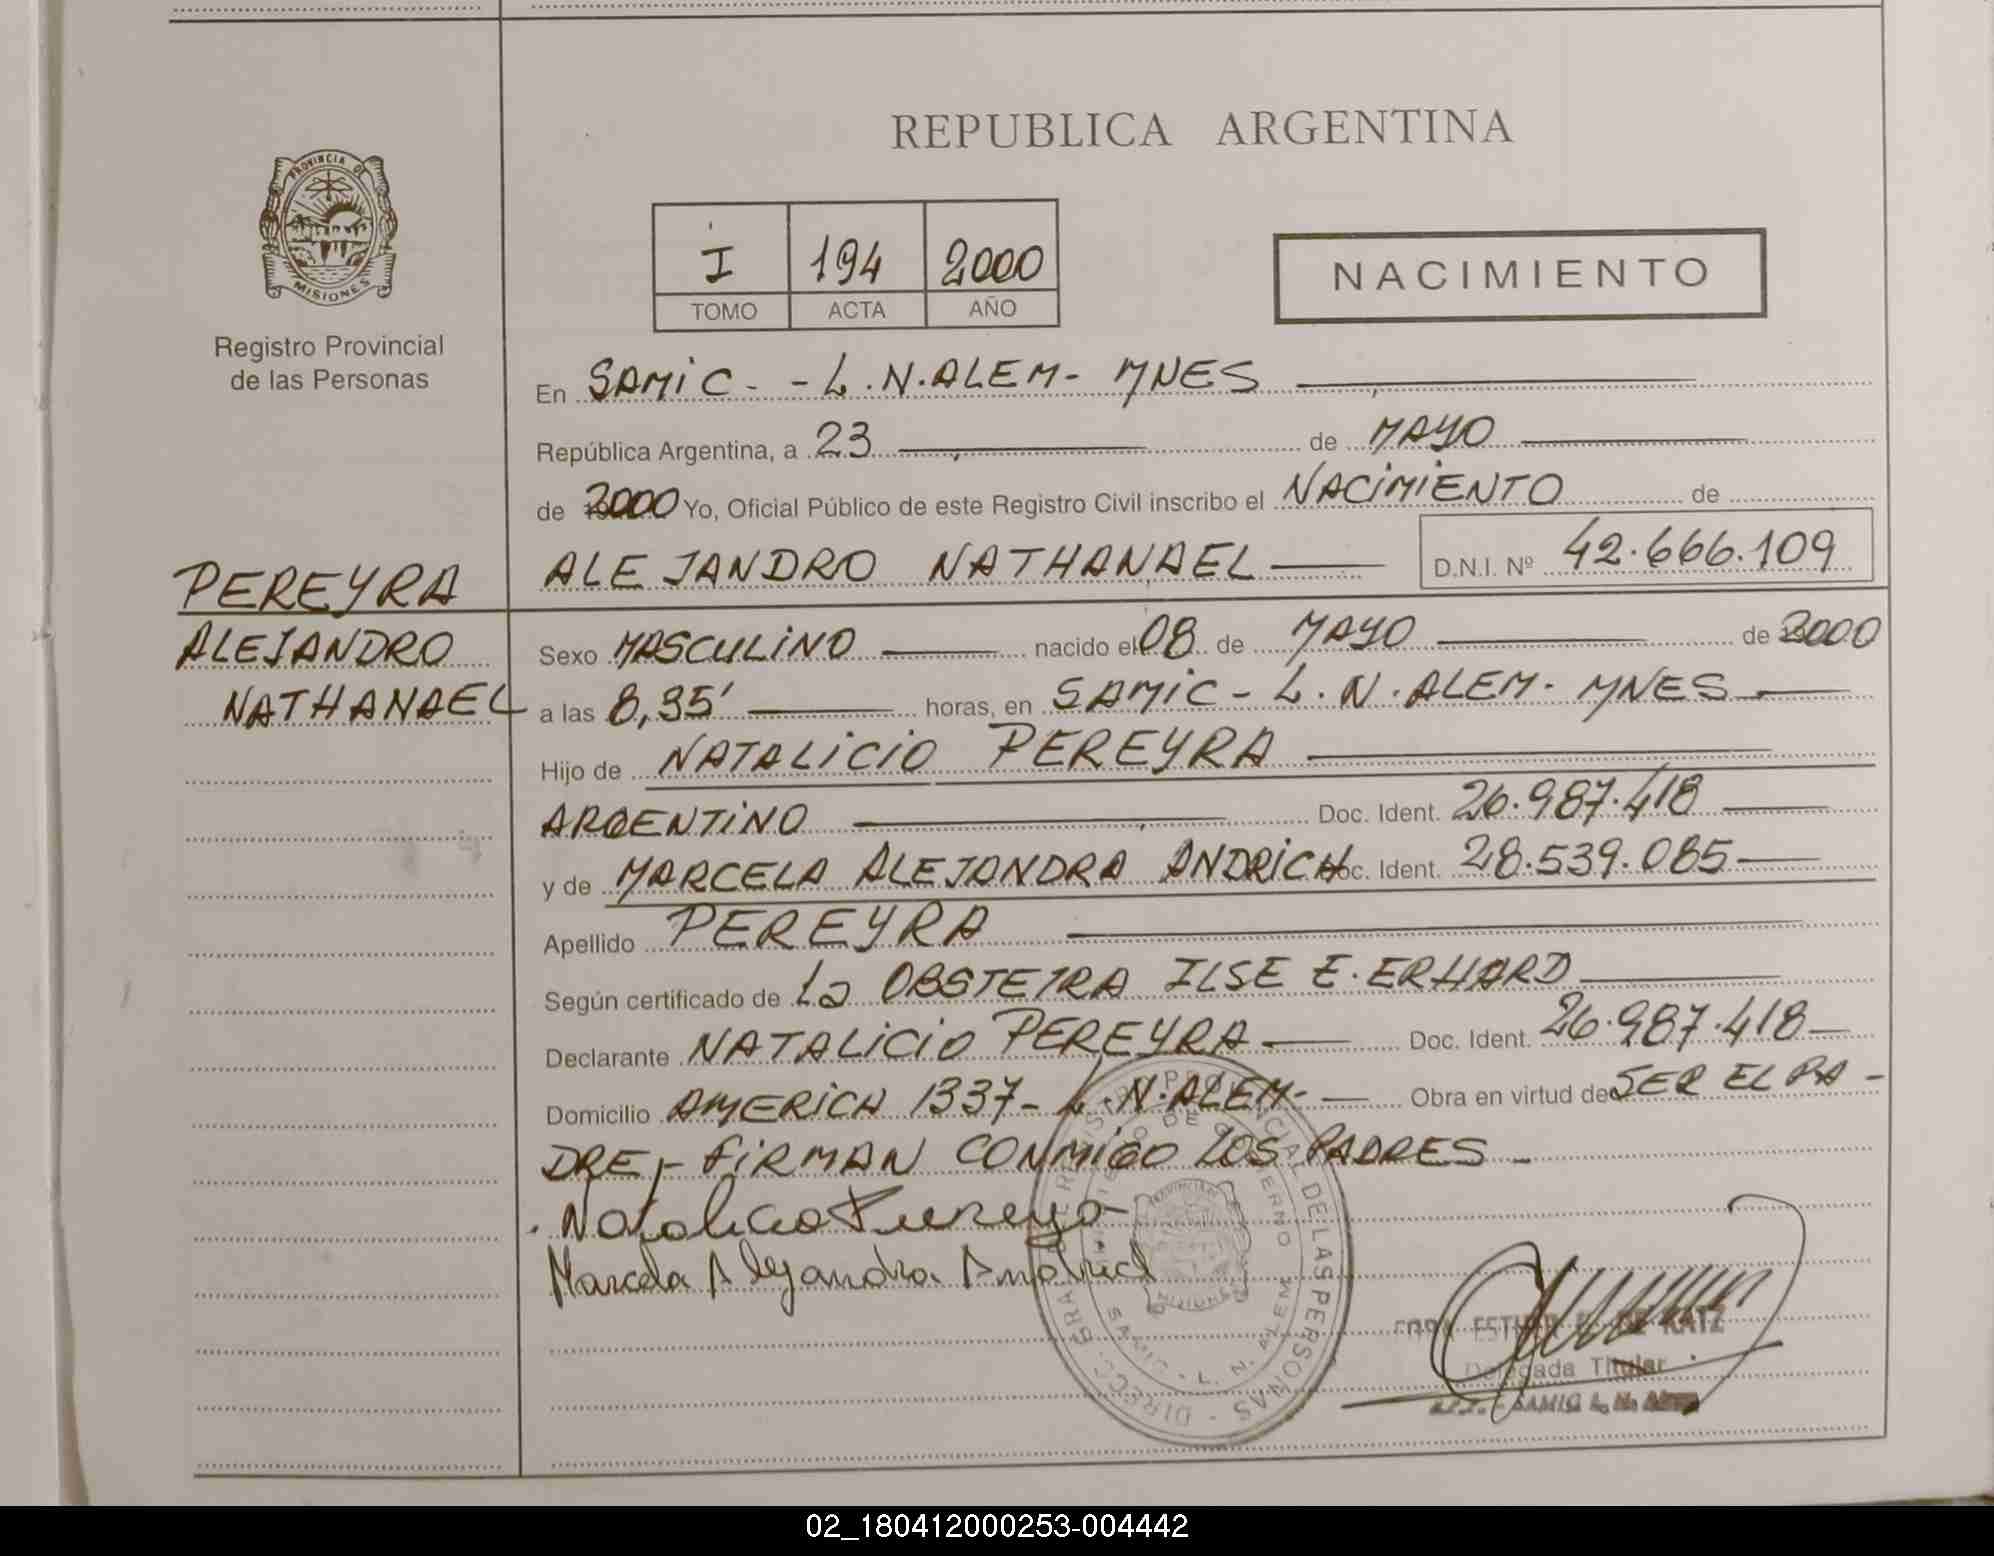 REPUBLICA ARGENTINA
PROVINCIA DE
MISIONES
Registro Provincial
de las Personas
I 194 2000
TOMO ACTA AÑO
NACIMIENTO
En SAMIC - - L.N.ALEM - MNES
República Argentina, a 23 de MAYO
de 2000 Yo, Oficial Público de este Registro Civil inscribo el NACIMIENTO de
ALEJANDRO NATHANAEL D.N.I. Nº 42.666.109
PEREYRA
ALEJANDRO
NATHANAEL
Sexo MASCULINO nacido el 08 de MAYO de 2000
a las 8,35' horas, en SAMIC - L.N.ALEM - MNES
Hijo de NATALICIO PEREYRA
ARGENTINO Doc. Ident. 26.987.418
y de MARCELA ALEJANDRA ANDRICH Doc. Ident. 28.539.085
Apellido PEREYRA
Según certificado de La OBSTETRA ILSE E. ERHARD
Declarante NATALICIO PEREYRA Doc. Ident. 26.987.418
Domicilio AMERICA 1337 - L.N.ALEM - Obra en virtud de SER EL PA -
DRE,- FIRMAN CONMIGO LOS PADRES -
Natalicio Pereyra
Marcela Alejandra Andrich
DE LAS PERSONAS - DIRECC
SAMIC - L. N. ALEM
MISIONES
ESTHER DE KATZ
Delegada Titular
SAMIC L. N. Alem
02_180412000253-004442